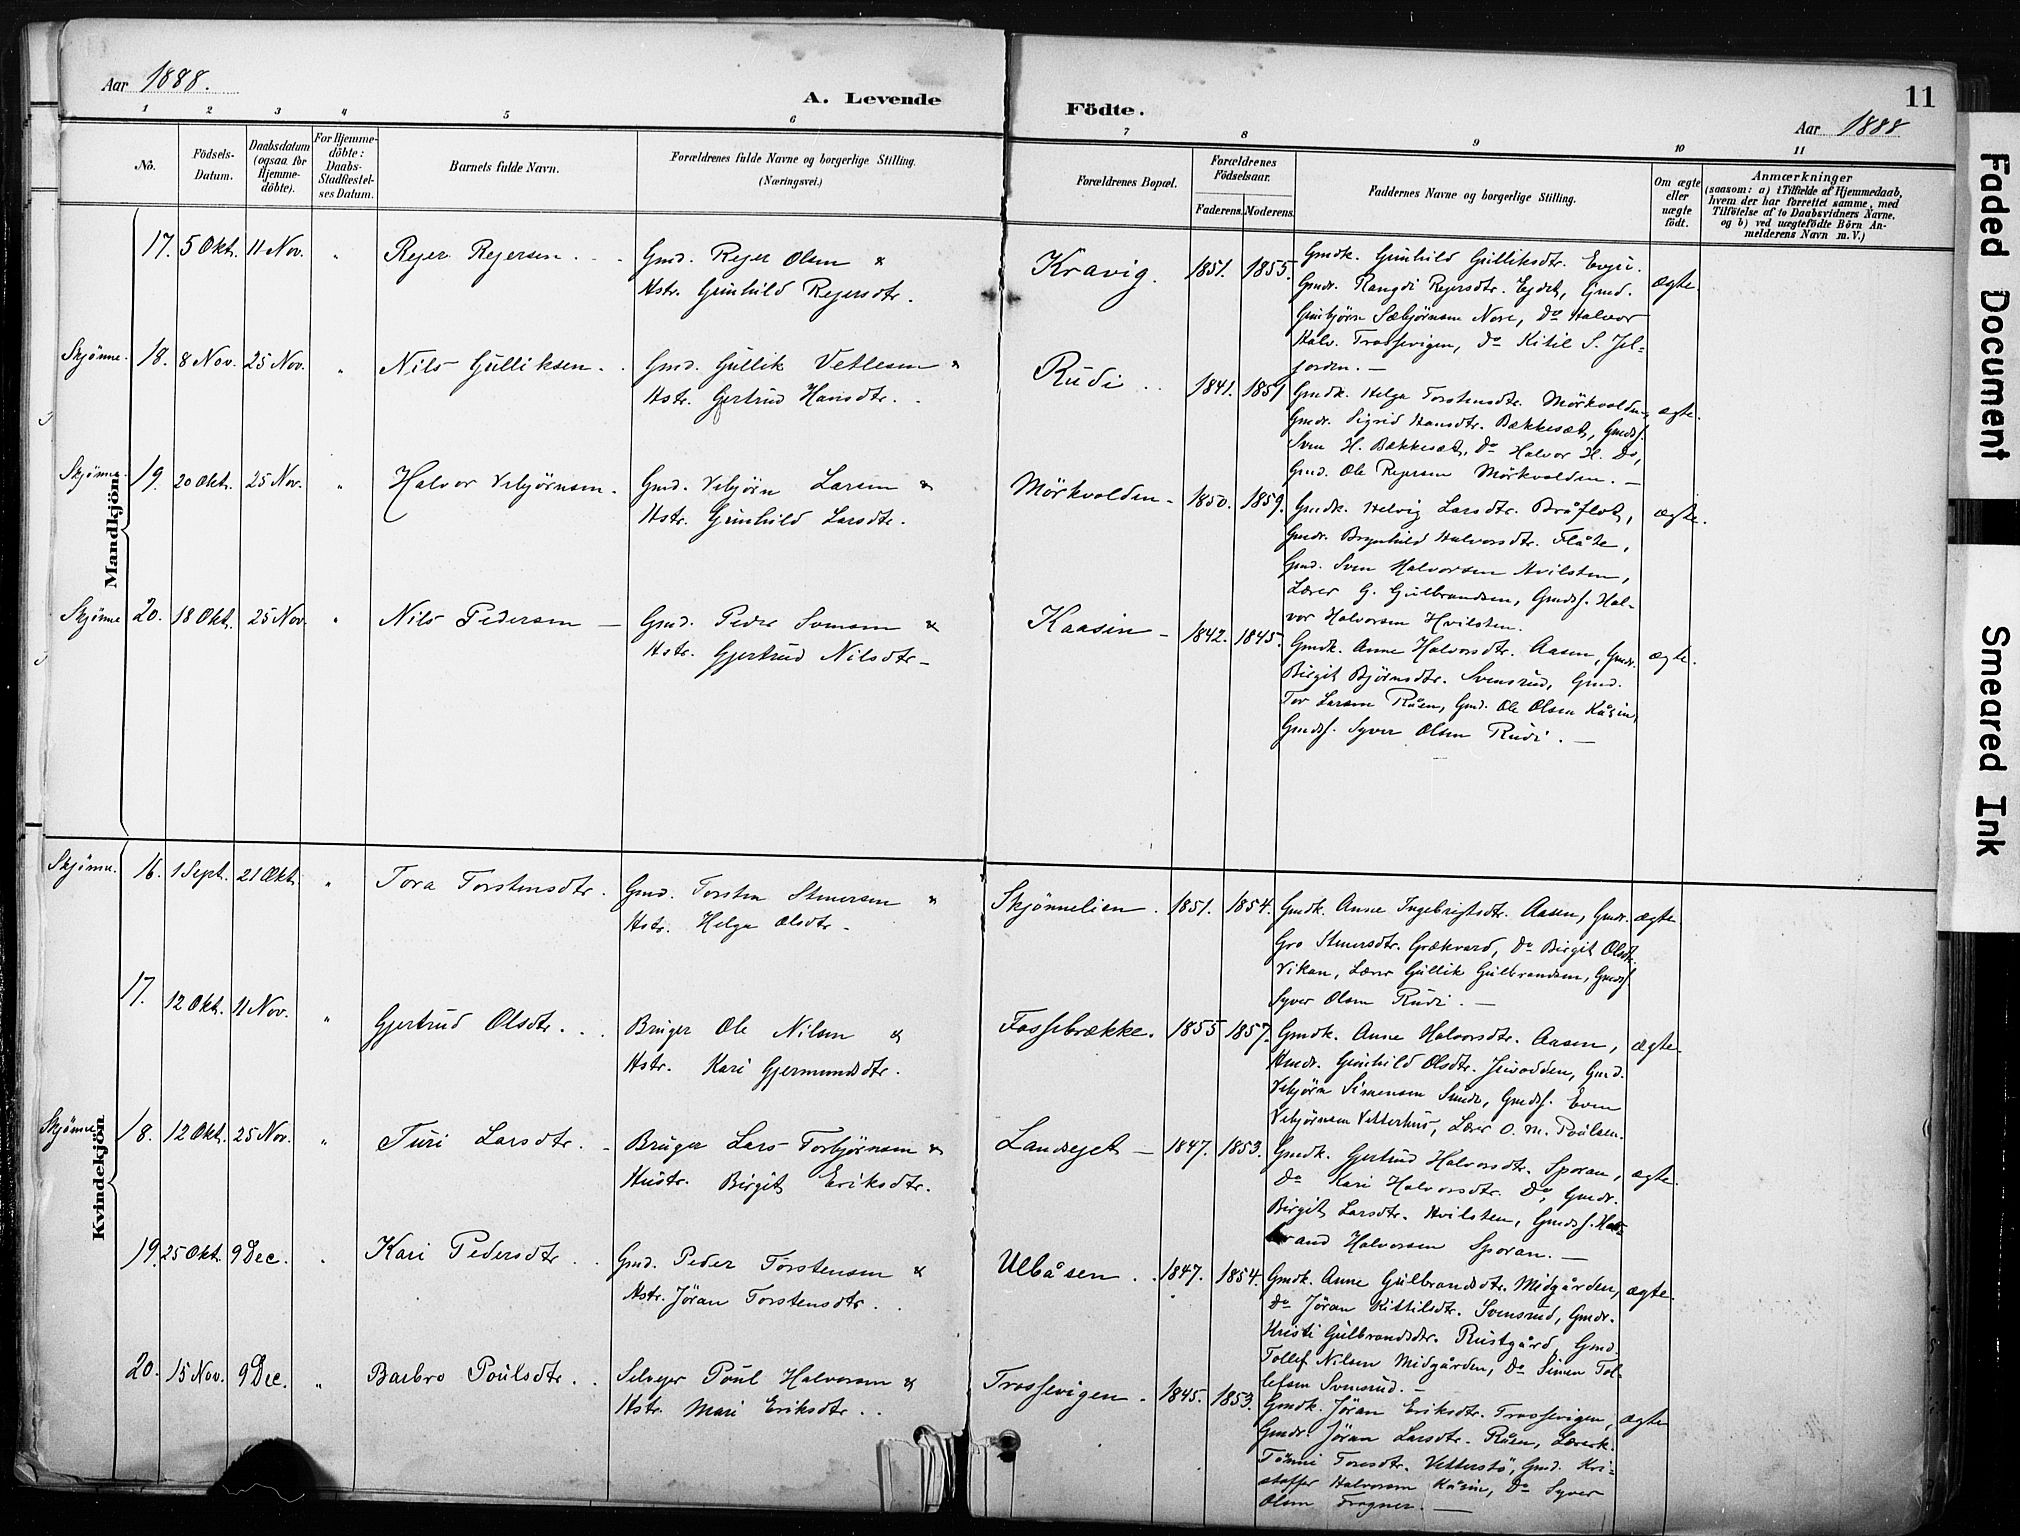 Aar 1888.
A. Levende
Födte.
11
Aar 1888
1 2 3 4 5 6 7 8 9 10 11
No.
Födsels-Datum.
Daabsdatum (ogsaa for Hjemme-döbte).
For Hjemme-döbte: Daabs-Stadfæstel-ses Datum.
Barnets fulde Navn.
Forældrenes fulde Navne og borgerlige Stilling. (Næringsvei.)
Forældrenes Bopæl.
Forældrenes Födselsaar.
Faderens. Moderens.
Faddernes Navne og borgerlige Stilling.
Om ægte eller uægte födt.
Anmærkninger
(saasom: a) i Tilfælde af Hjemmedaab, hvem der har forrettet samme, med Tilföielse af to Daabsvidners Navne, og b) ved uægtefödte Börn An-melderens Navn m. V.)
Mandkjön.
17. 5 Okt. 11 Nov. " Rejer Rejersen. Gmd. Rejer Olsen &
Hstr. Gunhild Rejersdtr.
Kravig. 1851. 1855.
Gmdk. Gunhild Gulliksdtr. Evju.
Gmdr. Rangdi Rejersdtr. Ejdet, Gmd.
Gunbjørn Sæbjørnsen Nore, Do Halvor
Halv. Trossevigen, Do Kitil S. Jel-
jorden. —
ægte.
Skjønne. 18. 8 Nov. 25 Nov. " Nils Gulliksen. Gmd. Gullik Vetlesen &
Hstr. Gertrud Hansdtr.
Rudi. 1841. 1851
Gmdk. Helga Torstensdtr. Mörkvolden,
Gmdr. Sigrid Hansdtr. Bækkesæt, Gmdsf.
Sven H. Bækkesæt, Do Halvor H. Do,
Gmd. Ole Rejersen Mörkvolden. —
ægte.
Skjønne. 19. 20 Okt. 25 Nov. " Halvor Vebjørnsen. Gmd. Vebjørn Larsen &
Hstr. Gunhild Larsdtr.
Mörkvolden - 1850. 1859.
Gmdk. Helvig Larsdtr. Bråflot,
Gmdr. Brynhild Halvorsdtr. Flåte,
Gmd. Sven Halvorsen Hvilsten,
Lærer G. Gulbrandsen, Gmdsf. Hal-
vor Halvorsen Hvilsten.
ægte.
Skjønne 20. 18 Okt. 25 Nov. " Nils Pedersen — Gmd. Peder Svensen &
Hstr. Gjertrud Nilsdtr —
Kaasin - 1842. 1845.
Gmdk. Anne Halvorsdtr. Aasen, Gmdr.
Birgit Bjørnsdtr. Svensrud, Gmd.
Tov Larsen Råen, Gmd. Ole Olsen Kåsin,
Gmdsf. Syver Olsen Rudi. —
ægte.
Kvindekjön
Skjønne. 16. 1 Sept. 21 Okt. " Tora Torstensdtr. Gmd. Torsten Stenersen &
Hstr. Helga Olsdtr.
Skjönnelien. 1851. 1854.
Gmdk. Anne Ingebrigtsdtr. Aasen, Gmdr.
Gro Stenersdtr. Grækvard, Do Birgit Olsdtr.
Vikan, Lærer Gullik Gulbrandsen, Gmdsf.
Syver Olsen Rudi. —
ægte
17. 12 Okt. 11 Nov. " Gjertrud Olsdtr. Bruger Ole Nilsen &
Hstr. Kari Gjermundsdtr.
Fossebrække. 1855 1857.
Gmdk. Anne Halvorsdtr. Aasen,
Hmdr. Gunhild Olsdtr. Juvodden, Gmd.
Vebjørn Simensen Smidr, Gmdsf. Even
Vebjørnsen Vetterhus, Lærer O. M. Poulsen.
ægte.
Skjønne 18. 12 Okt. 25 Nov. " Turi Larsdtr. - Bruger Lars Torbjørnsen &
Hustr. Birgit Eriksdtr.
Landsejet — 1847. 1853.
Gmdk. Gjertrud Halvorsdtr. Sporan,
Do Kari Halvorsdtr. Do, Gmdr.
Birgit Larsdtr. Hvilsten, Gmdsf. Hal-
brand Halvorsen Sporan. —
ægte.
19. 25 Okt. 9 Dec. " Kari Pedersdtr. Gmd. Peder Torstensen &
Hstr. Jöran Torstensdtr.
Ulbåsen. 1847. 1854.
Gmdk. Anne Gulbrandsdtr. Midgården,
Do Jöran Kittilsdtr. Svensrud, Gmdr.
Kristi Gulbrandsdtr. Rustgård, Gmd.
Tollef Nilsen Midgården, Do Simen Tol-
lefsen Svensrud. —
ægte.
20. 15 Nov. 9 Dec. " Barbro Poulsdtr. Selvejer Poul Halvorsen &
Hstr. Mari Eriksdtr.
Trossevigen. 1845. 1853.
Gmdk. Jöran Eriksdtr. Trossevigen,
Gmdr. Jöran Larsdtr. Råen, Lærerk.
Tönni Toresdtr. Vetterstö, Gmd. Kri-
stoffer Halvorsen Kåsin, Do Syver
Olsen Fragner. —
ægte
Faded Document
Smeared Ink